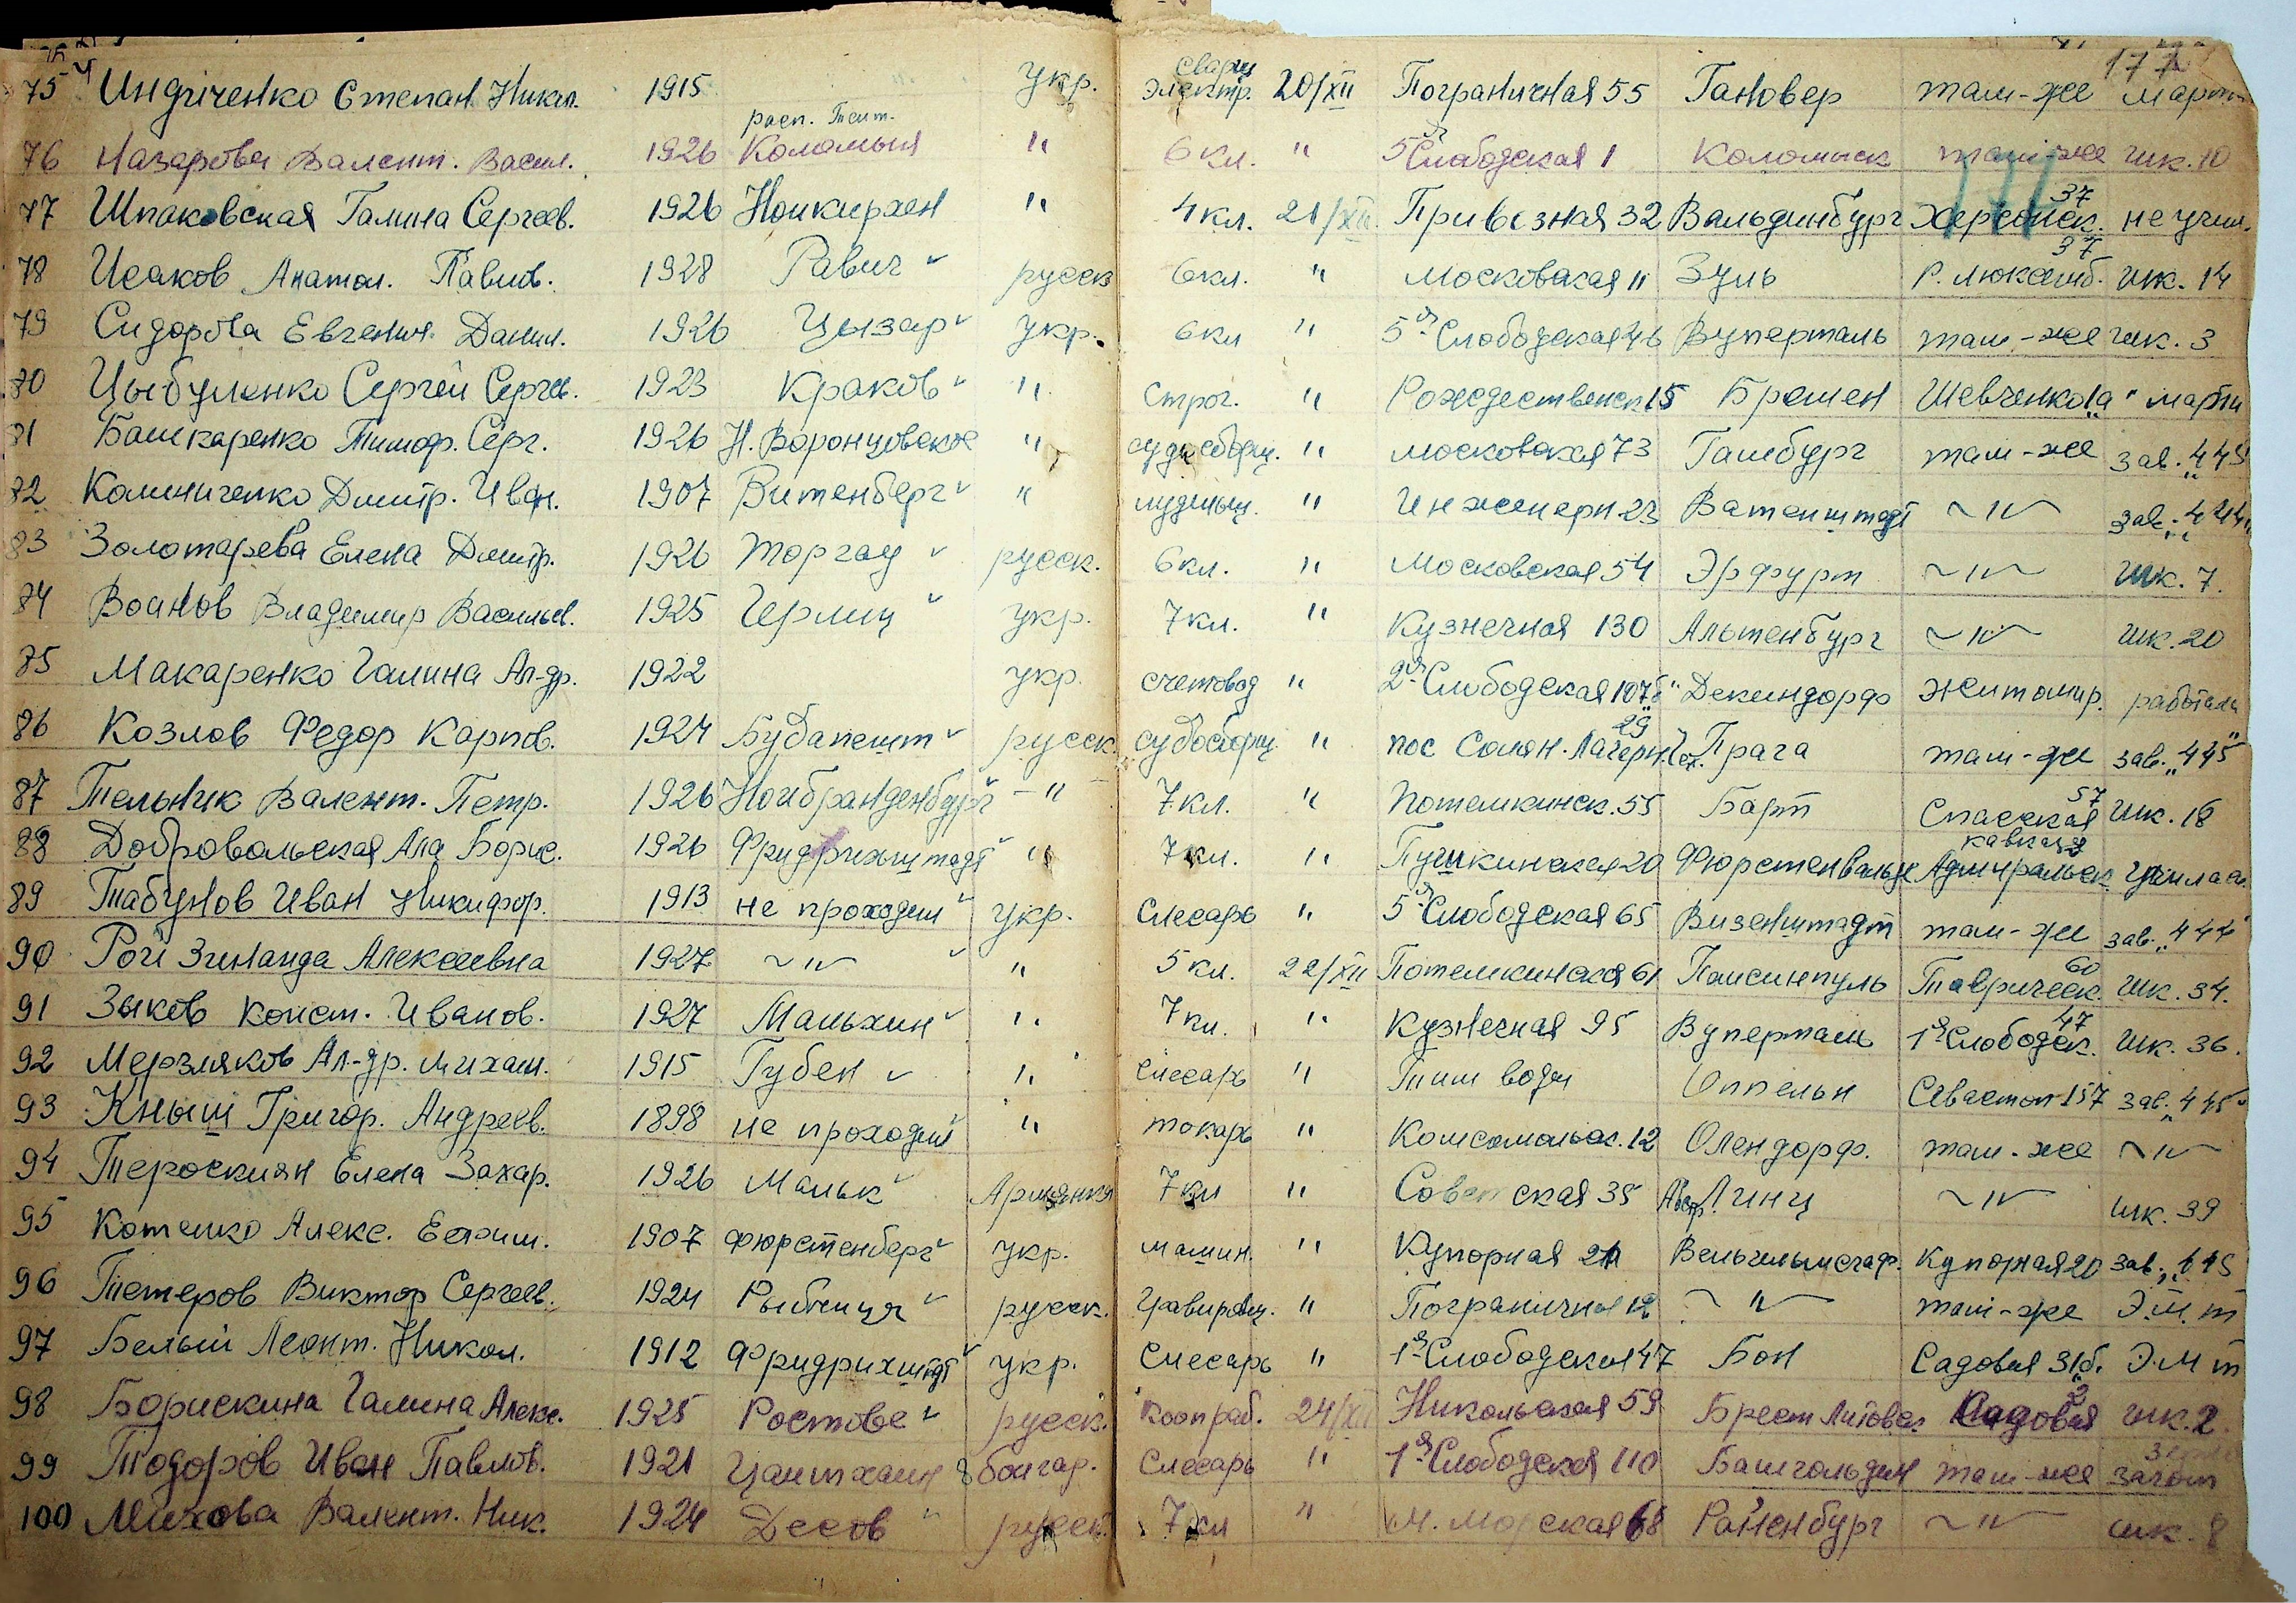 177
75 Индиченко Степан Никол. 1915 укр. сварщ электр. 20/XII Пограничная 55 Гановер там-же марти
76 Назарова Валент. Васил. 1926 расп. Тит. Коломыя " 6 кл. " 5я Слободская 1 Коломыск там-же шк. 10
77 Шпаковская Галина Сергеев. 1926 Ноикирхен " 4 кл. 21/XII Привозная 32 Вальдинбург Херсонск. 37 не учил.
78 Исаков Анатол. Павлов. 1928 Равич русск 6 кл. " Московская 11 Зуль Р. Люксемб. 37 шк. 14
79 Сидорова Евгения Данил. 1926 Цызар укр. 6 кл " 5я Слободская 46 Вуперталь там-же шк. 3
80 Цыбуленко Сергей Сергев. 1923 Краков " Строг. " Рождественск 15 Бремен Шевченко 1"а" марти
81 Башкаренко Тимоф. Серг. 1926 Н. Воронцовское " судосборщ. " Московская 73 Гамбург там-же зав. "445"
82 Калиниченко Дмитр. Иван. 1907 Витенберг " лудильщ. " Инженерн 23 Ватенштадт ~"~ зав. "444"
83 Золотарева Елена Дмитр. 1926 Торгау русск. 6 кл. " Московская 54 Эрфурт ~"~ шк. 7.
84 Воинов Владимир Васильев. 1925 Герлиц укр. 7 кл. " Кузнечная 130 Альтенбург ~"~ шк. 20
85 Макаренко Галина Ал-др. 1922 укр. счетовод " 2я Слободская 107"б" Декендорф Житомир. работала
86 Козлов Федор Карпов. 1924 Будапешт русск. судосборщ. " пос Солян. Лагерн. 29 Чех. Прага там-же зав. "445"
87 Тельник Валент. Петр. 1926 Ноибранденбург -" 7 кл. " Потемкинск. 55 Барт Спасская 57 шк. 18
88 Добровольская Ала Борис. 1926 Фридрихштадт " 7 кл. " Пушкинская 20 Фюрстенвальде Адмиральск
89 Табунов Иван Никифор. 1913 не проходил укр. Слесарь " 5я Слободская 65 Визенштадт там-же зав. "444"
90 Рой Зинаида Алексеевна 1927 ~"~ " 5 кл. 22/XII Потемкинская 61 Паисинпуль Таврическ. 60 шк. 34.
91 Зыков Конст. Иванов. 1927 Мальхин " 7 кл. " Кузнечная 95 Вуперталь 1я Слободск. 47 шк. 36.
92 Мерзляков Ал-др. Михаил. 1915 Губен " слесарь " Тит води Оппельн Севастоп 157 зав. "445"
93 Кныш Григор. Андреев. 1898 не проходил " токарь " Комсомольс. 12 Олендорф. там-же ~"~
94 Тероскиян Елена Захар. 1926 Мальк Армянка 7 кл " Советская 35 Австр. Линц ~"~ шк. 39
95 Котенко Алекс. Ефим. 1907 Фюрстенберг укр. машин. " Купорная 20 Вельгельмсгаф. Купорная 20 зав. "445
96 Тетеров Виктор Сергеев. 1924 Рыбница русск. Гравировщ. " Пограничная 12 ~"~ там-же Э.М.т
97 Белый Леонт. Никол. 1912 Фридрихштадт укр. Слесарь " 1я Слободская 47 Бон Садовая 31"б" Э.М т
98 Борискина Галина Алекс. 1925 Ростове русск. коопраб. 24/XII Никольская 59 Брест Литовск Садовая 2 шк. 2.
99 Тодоров Иван Павлов. 1921 Цантхаин болгар. Слесарь " 1я Слободская 110 Башгольдин там-же загот
100 Михова Валент. Ник. 1924 Десов русск. 7 кл " М. Морская 68 Райенбург ~"~ шк. 8